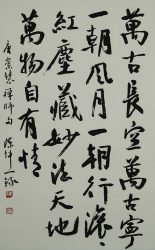 萬古長空萬古寧
一朝風月一朝行滾滾
紅塵藏妙法天地
萬物自有情
唐崇慧禪師句